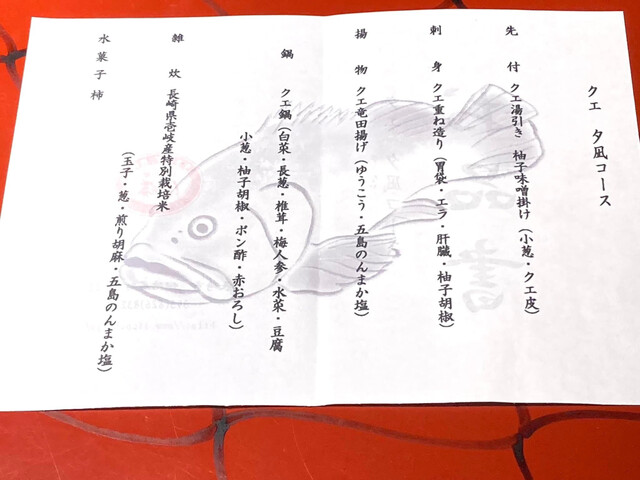 クエ 夕凪コース
先付 クエ湯引き 柚子味噌掛け（小葱・クエ皮）
刺身 クエ重ね造り（胃袋・エラ・肝臓・柚子胡椒）
揚物 クエ竜田揚げ（ゆうこう・五島のんまか塩）
鍋 クエ鍋（白菜・長葱・椎茸・梅人参・水菜・豆腐
小葱・柚子胡椒・ポン酢・赤おろし）
雑炊 長崎県壱岐産特別栽培米
（玉子・葱・煎り胡麻・五島のんまか塩）
水菓子 柿